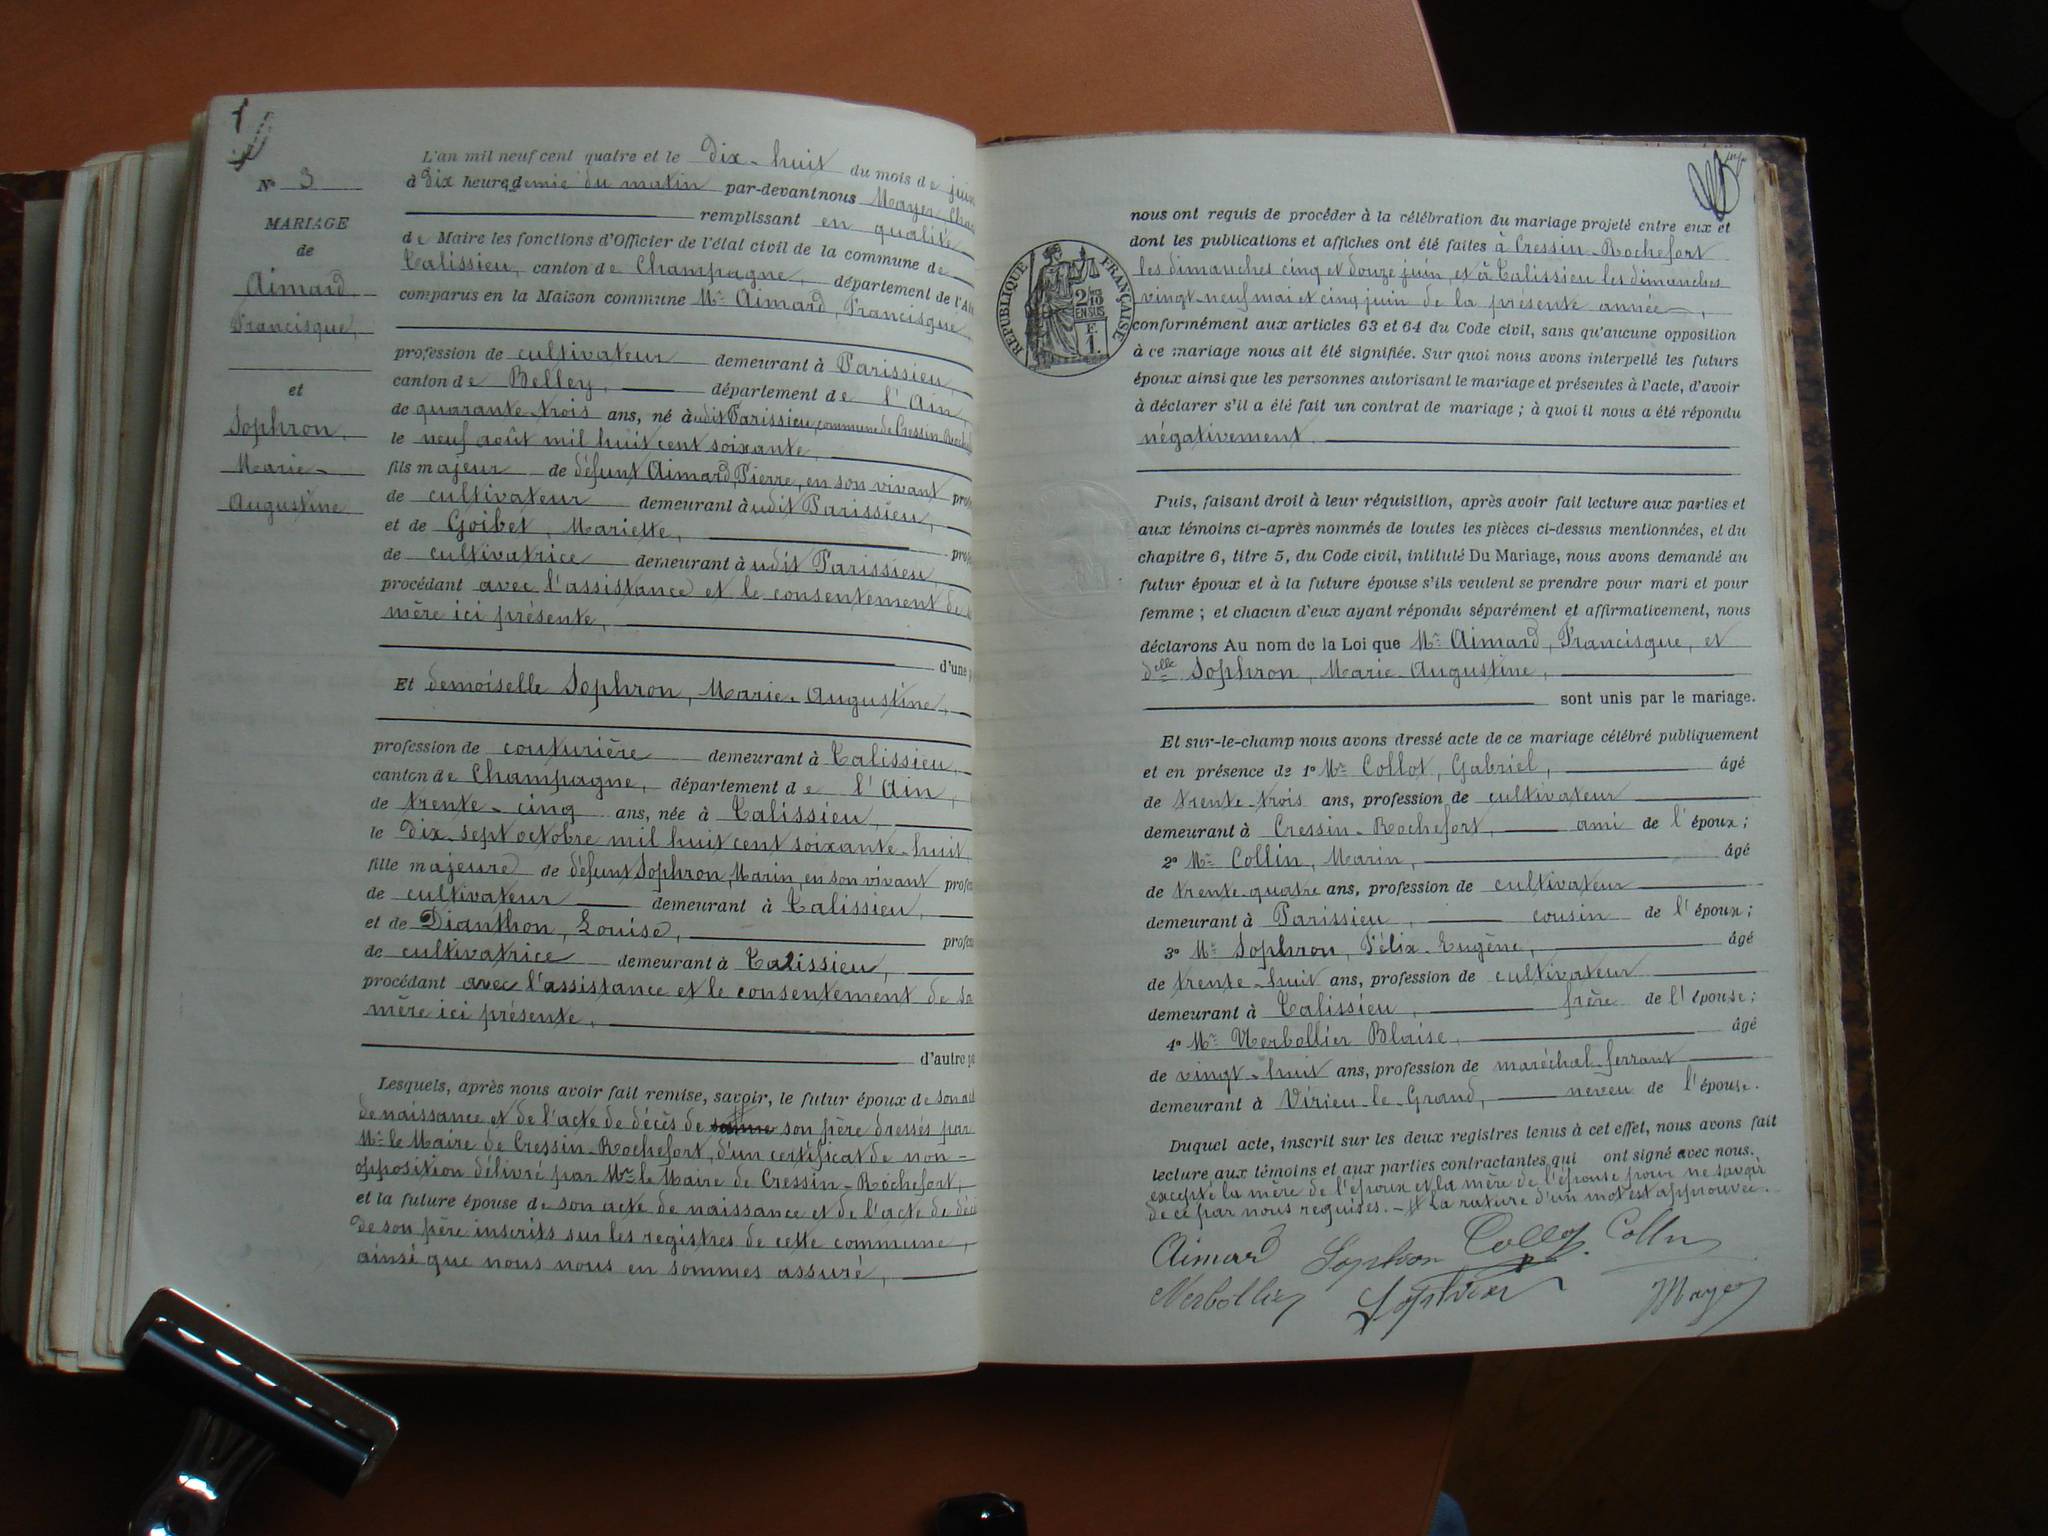 N° 3
MARIAGE
de
Aimard
Francisque,
et
Sophron,
Marie-
Augustine
L'an mil neuf cent quatre et le dix-huit du mois de juin
à dix heures demie du matin par-devant nous Mayer
remplissant en qualité
de Maire les fonctions d'Officier de l'état civil de la commune de
Talissieu, canton de Champagne, département de l'Ain
comparus en la Maison commune Mr Aimard, Francisque,
profession de cultivateur demeurant à Parissieu,
canton de Belley, département de l'Ain,
de quarante-trois ans, né àudit Parissieu, commune de Cressin-
le neuf août mil huit cent soixante,
fils majeur de défunt Aimard, Pierre, en son vivant
de cultivateur demeurant àudit Parissieu,
et de Goibet, Mariette,
de cultivatrice demeurant àudit Parissieu,
procédant avec l'assistance et le consentement de
mère ici présente,
d'une
Et demoiselle Sophron, Marie-Augustine,
profession de couturière demeurant à Talissieu,
canton de Champagne, département de l'Ain,
de trente-cinq ans, née à Talissieu,
le dix-sept octobre mil huit cent soixante-huit,
fille majeure de défunt Sophron, Marin, en son vivant
de cultivateur demeurant à Talissieu,
et de Dianthon, Louise,
de cultivatrice demeurant à Talissieu,
procédant avec l'assistance et le consentement de sa
mère ici présente,
d'autre
Lesquels, après nous avoir fait remise, savoir, le futur époux de son
de naissance et de l'acte de décès de son père dressés par
Mr le Maire de Cressin-Rochefort, d'un certificat de non-
opposition délivré par Mr le Maire de Cressin-Rochefort,
et la future épouse de son acte de naissance et de l'acte de
de son père inscrits sur les registres de cette commune,
ainsi que nous nous en sommes assuré,
REPUBLIQUE FRANÇAISE
2/10
EN SUS
nous ont requis de procéder à la célébration du mariage projeté entre eux et
dont les publications et affiches ont été faites à Cressin-Rochefort
les dimanches cinq et douze juin, et à Talissieu les dimanches
vingt-neuf mai et cinq juin de la présente année,
conformément aux articles 63 et 64 du Code civil, sans qu'aucune opposition
à ce mariage nous ait été signifiée. Sur quoi nous avons interpellé les futurs
époux ainsi que les personnes autorisant le mariage et présentes à l'acte, d'avoir
à déclarer s'il a été fait un contrat de mariage ; à quoi il nous a été répondu
négativement.
Puis, faisant droit à leur réquisition, après avoir fait lecture aux parties et
aux témoins ci-après nommés de toutes les pièces ci-dessus mentionnées, et du
chapitre 6, titre 5, du Code civil, intitulé Du Mariage, nous avons demandé au
futur époux et à la future épouse s'ils veulent se prendre pour mari et pour
femme ; et chacun d'eux ayant répondu séparément et affirmativement, nous
déclarons Au nom de la Loi que Mr Aimard, Francisque, et
delle Sophron, Marie-Augustine,
sont unis par le mariage.
Et sur-le-champ nous avons dressé acte de ce mariage célébré publiquement
et en présence de 1° Mr Collot, Gabriel, âgé
de trente-trois ans, profession de cultivateur
demeurant à Cressin-Rochefort, ami de l'époux ;
2° Mr Collin, Marin, âgé
de trente-quatre ans, profession de cultivateur
demeurant à Parissieu, cousin de l'époux ;
3° Mr Sophron, Félix-Eugène, âgé
de trente-huit ans, profession de cultivateur
demeurant à Talissieu, frère de l'épouse ;
4° Mr Nerbollier Blaise, âgé
de vingt-huit ans, profession de maréchal-ferrant
demeurant à Virieu-le-Grand, neveu de l'épouse.
Duquel acte, inscrit sur les deux registres tenus à cet effet, nous avons fait
lecture aux témoins et aux parties contractantes qui ont signé avec nous.
excepté la mère de l'époux et la mère de l'épouse pour ne savoir
de ce par nous requises. - La rature d'un mot est approuvée.
Aimard Sophron Collot Collin
Nerbollier Sophron Mayer